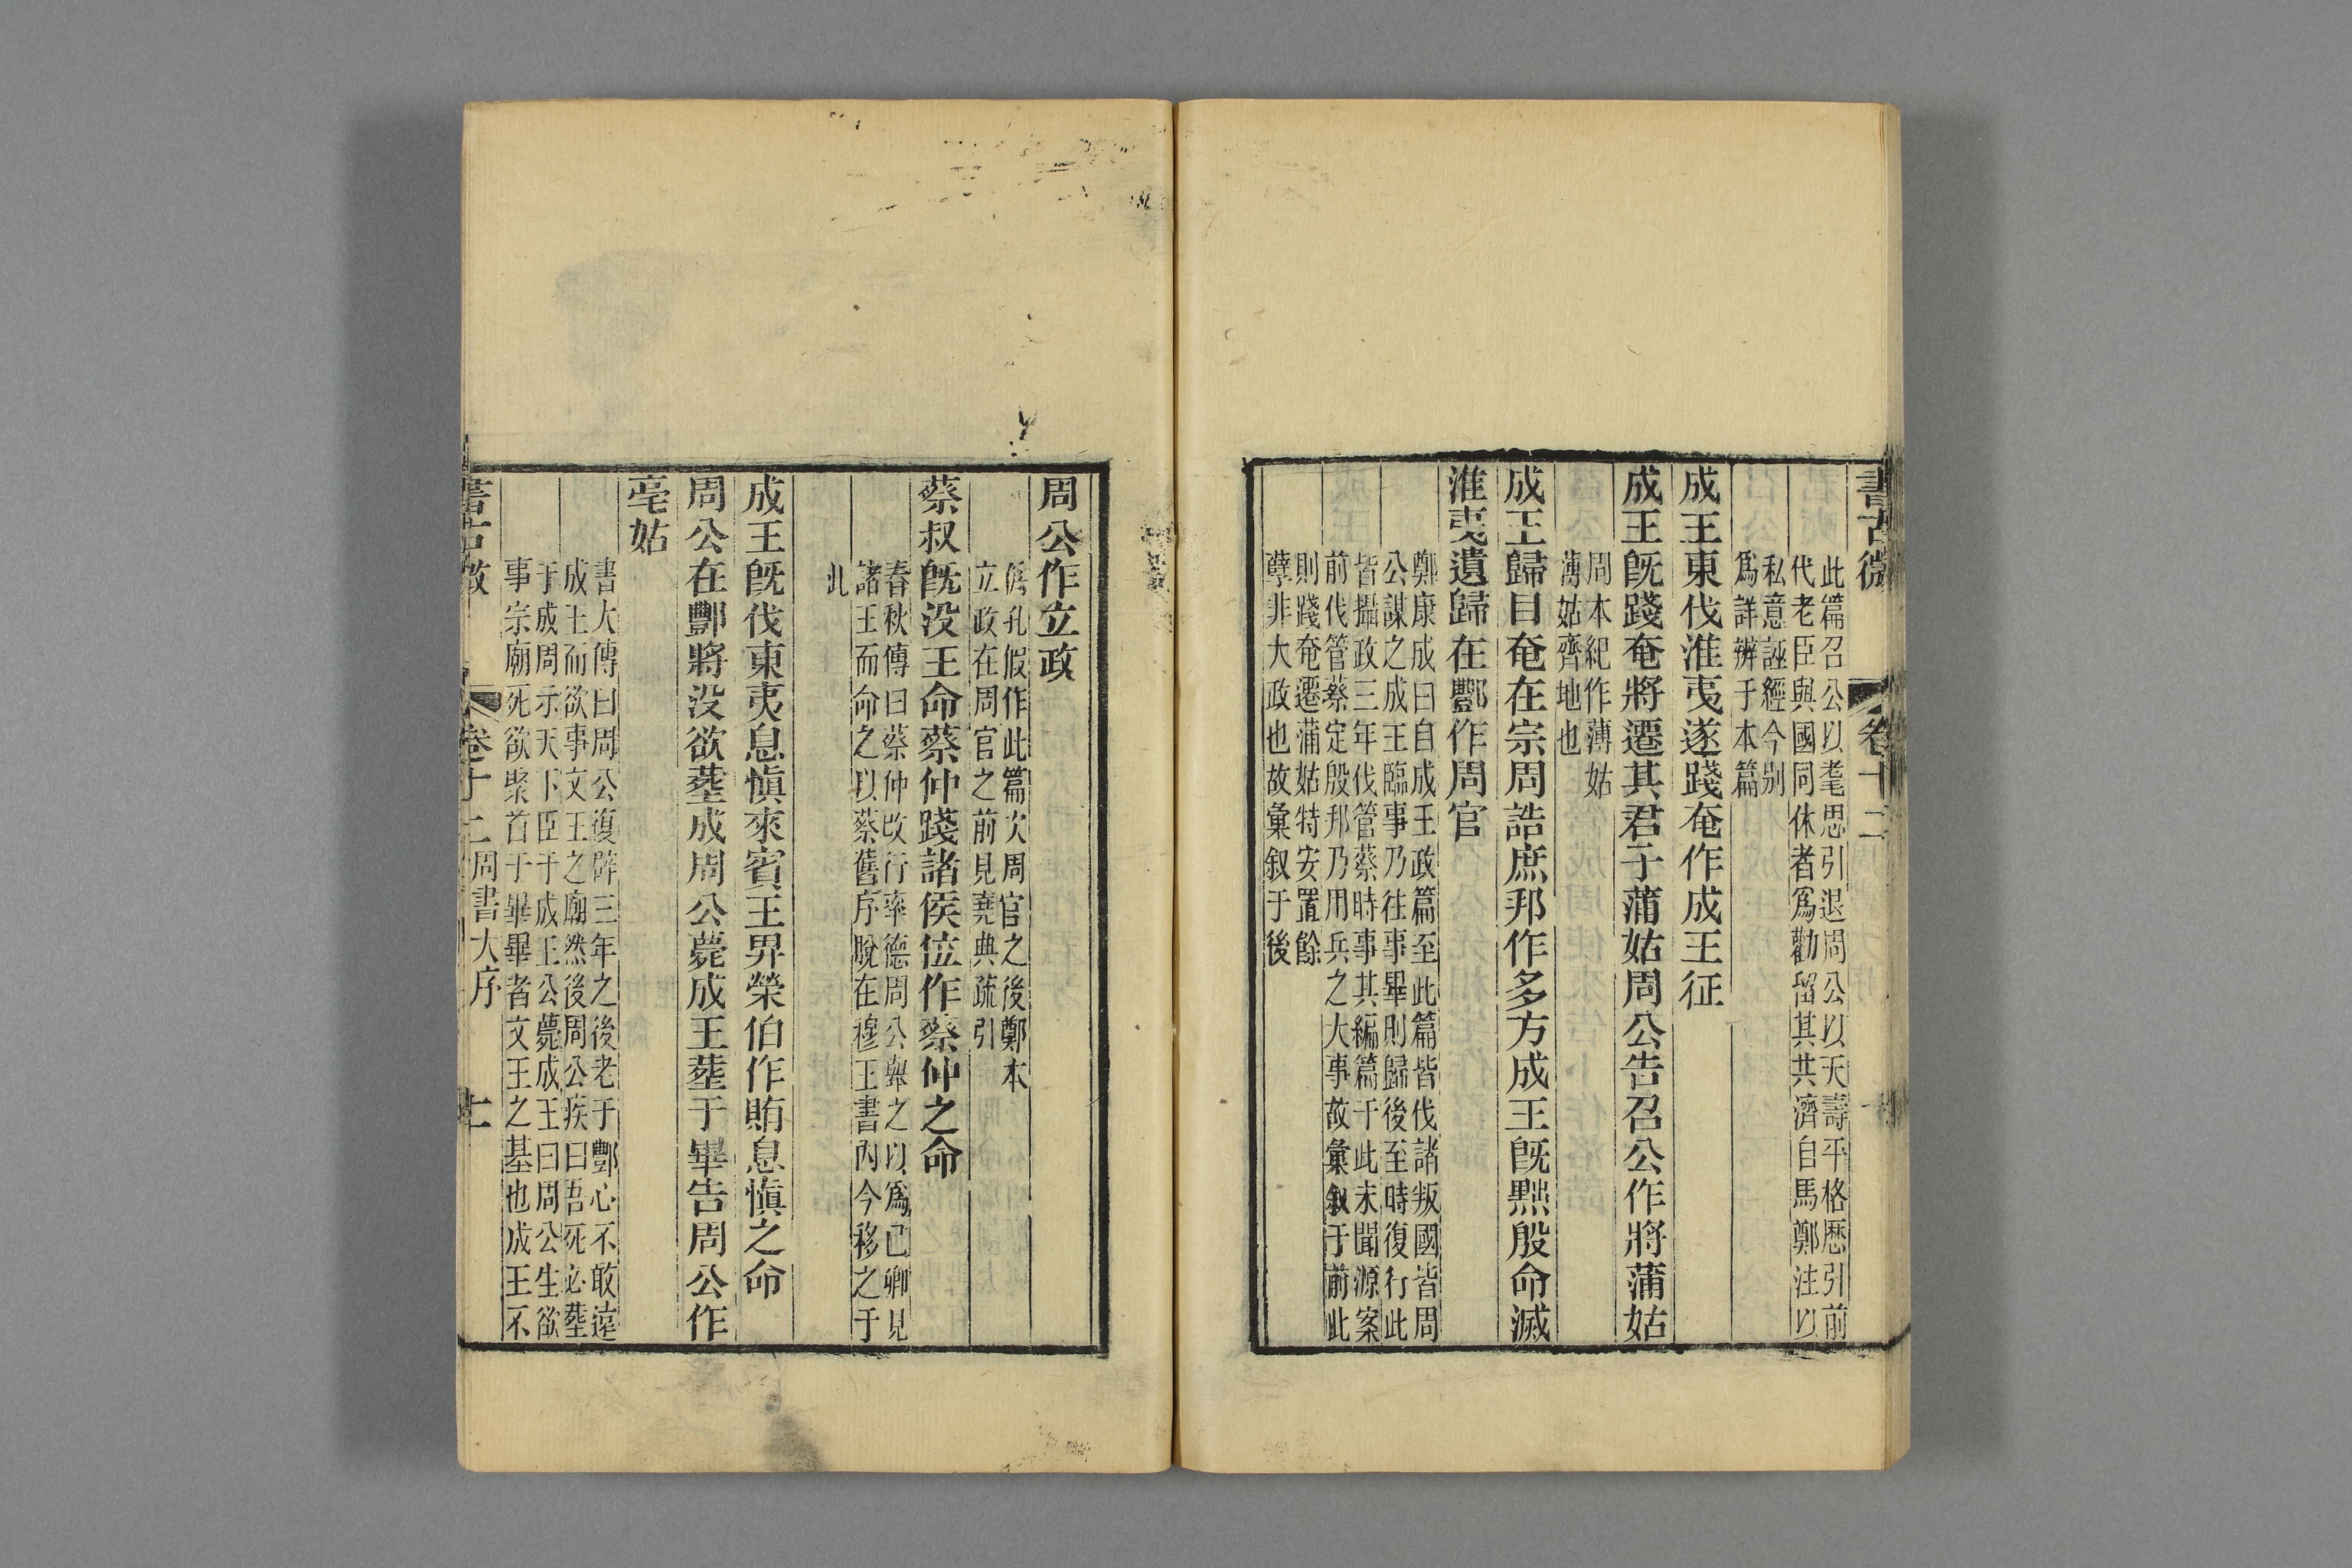 書古微
卷十二
此篇召公以耄思引退周公以天壽平格歷引前
代老臣與國同休者爲勸留其共濟自馬鄭注以
私意誣經今别
爲詳辨于本篇
成王東伐淮夷遂踐奄作成王征
成王旣踐奄將遷其君于蒲姑周公告召公作將蒲姑
周本紀作薄姑
薄姑齊地也
成王歸自奄在宗周誥庶邦作多方成王旣黜殷命滅
淮夷遺歸在酆作周官
鄭康成曰自成王政篇至此篇皆伐諸叛國皆周
公謀之成王臨事乃往事畢則歸後至時復行此
皆攝政三年伐管蔡時事其編篇于此未聞源案
前伐管蔡定殷邦乃用兵之大事故彙叙于前此
則踐奄遷蒲姑特安置餘
孽非大政也故彙叙于後
周公作立政
僞孔假作此篇次周官之後鄭本
立政在周官之前見堯典疏引
蔡叔旣没王命蔡仲踐諸侯位作蔡仲之命
春秋傳曰蔡仲改行率德周公舉之以爲己卿見
諸王而命之以蔡舊序脫在穆王書內今移之于
此
成王旣伐東夷息愼來賓王畀榮伯作賄息愼之命
周公在酆將没欲葬成周公薨成王葬于畢告周公作
亳姑
書大傳曰周公復辟三年之後老于酆心不敢遠
成王而欲事文王之廟然後周公疾曰吾死必葬
于成周示天下臣于成王公薨成王曰周公生欲
事宗廟死欲聚首于畢畢者文王之基也成王不
書古微
卷十二周書大序
七